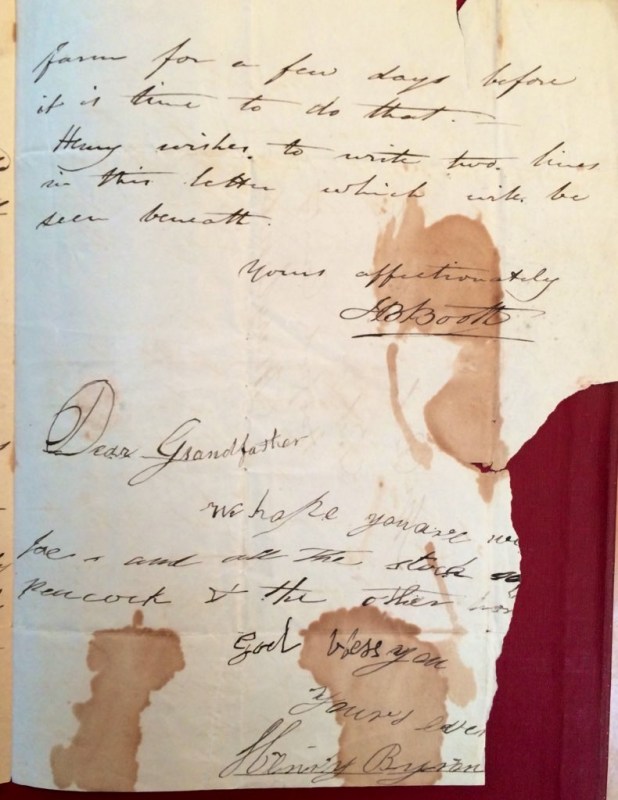 farm for a few days before
it is time to do that. —
Henry wishes to write two lines
in this letter which will be
seen beneath.
Yours affectionately
JBBooth
Dear Grandfather
we hope you are
and all the stock
Peacock & the other
God bless you
yours ever
Henry Byron